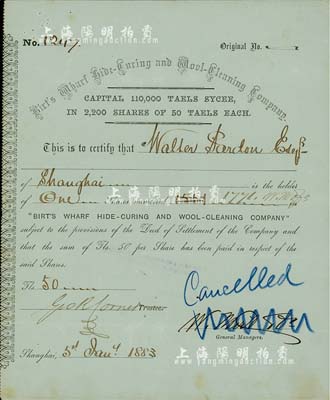 上海陽明拍賣
No. 1247 Original No.
Birt's Wharf Hide-Curing and Wool-Cleaning Company.
CAPITAL 110,000 TAELS SYCEE,
IN 2,200 SHARES OF 50 TAELS EACH.
This is to certify that Walter Scardon Esqr.
of Shanghai is the holder
of One
"BIRT'S WHARF HIDE-CURING AND WOOL-CLEANING COMPANY"
subject to the provisions of the Deed of Settlement of the Company and
that the sum of Tls. 50 per Share has been paid in respect of the
said Shares.
Tls. 50
Cancelled
Trustee
General Managers.
Shanghai, 5th Jany. 1883
上海陽明拍賣